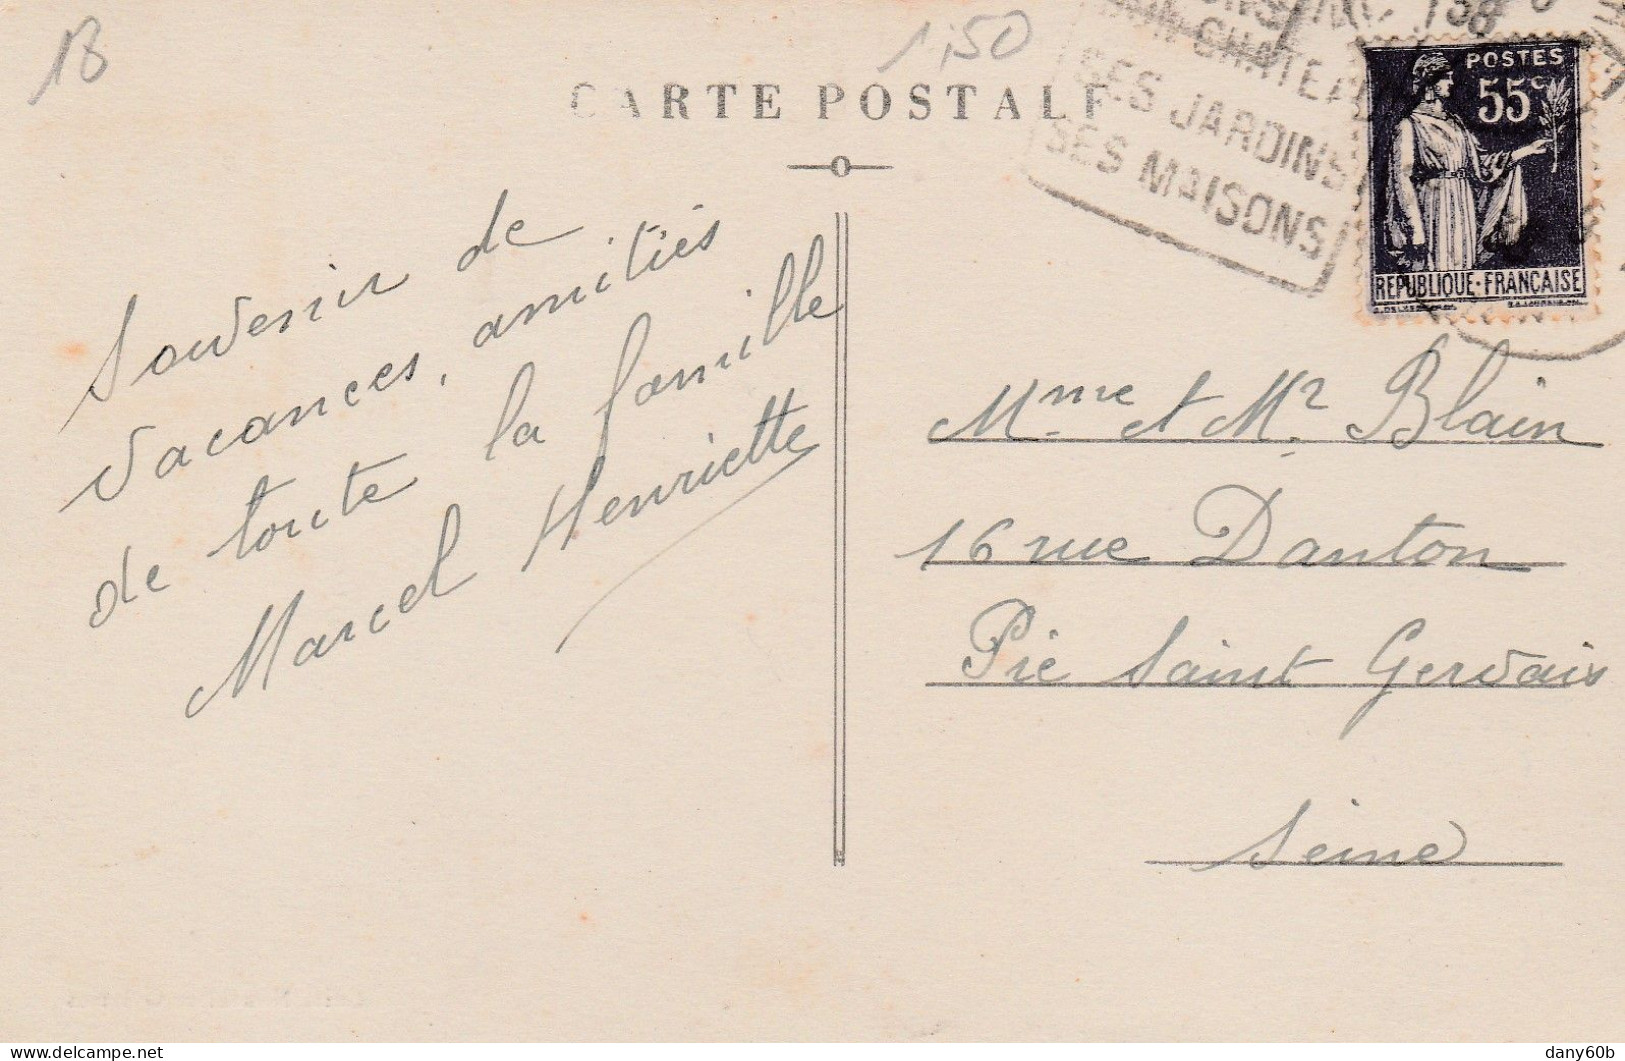 18
1,50
CARTE POSTALE
SON CHATEAU
SES JARDINS
SES MAISONS
POSTES
55c
REPUBLIQUE·FRANCAISE
Souvenir de
vacances, amitiés
de toute la famille
Marcel Henriette
Mme et Mr Blain
16 rue Danton
Pré Saint Gervais
Seine
dany60b